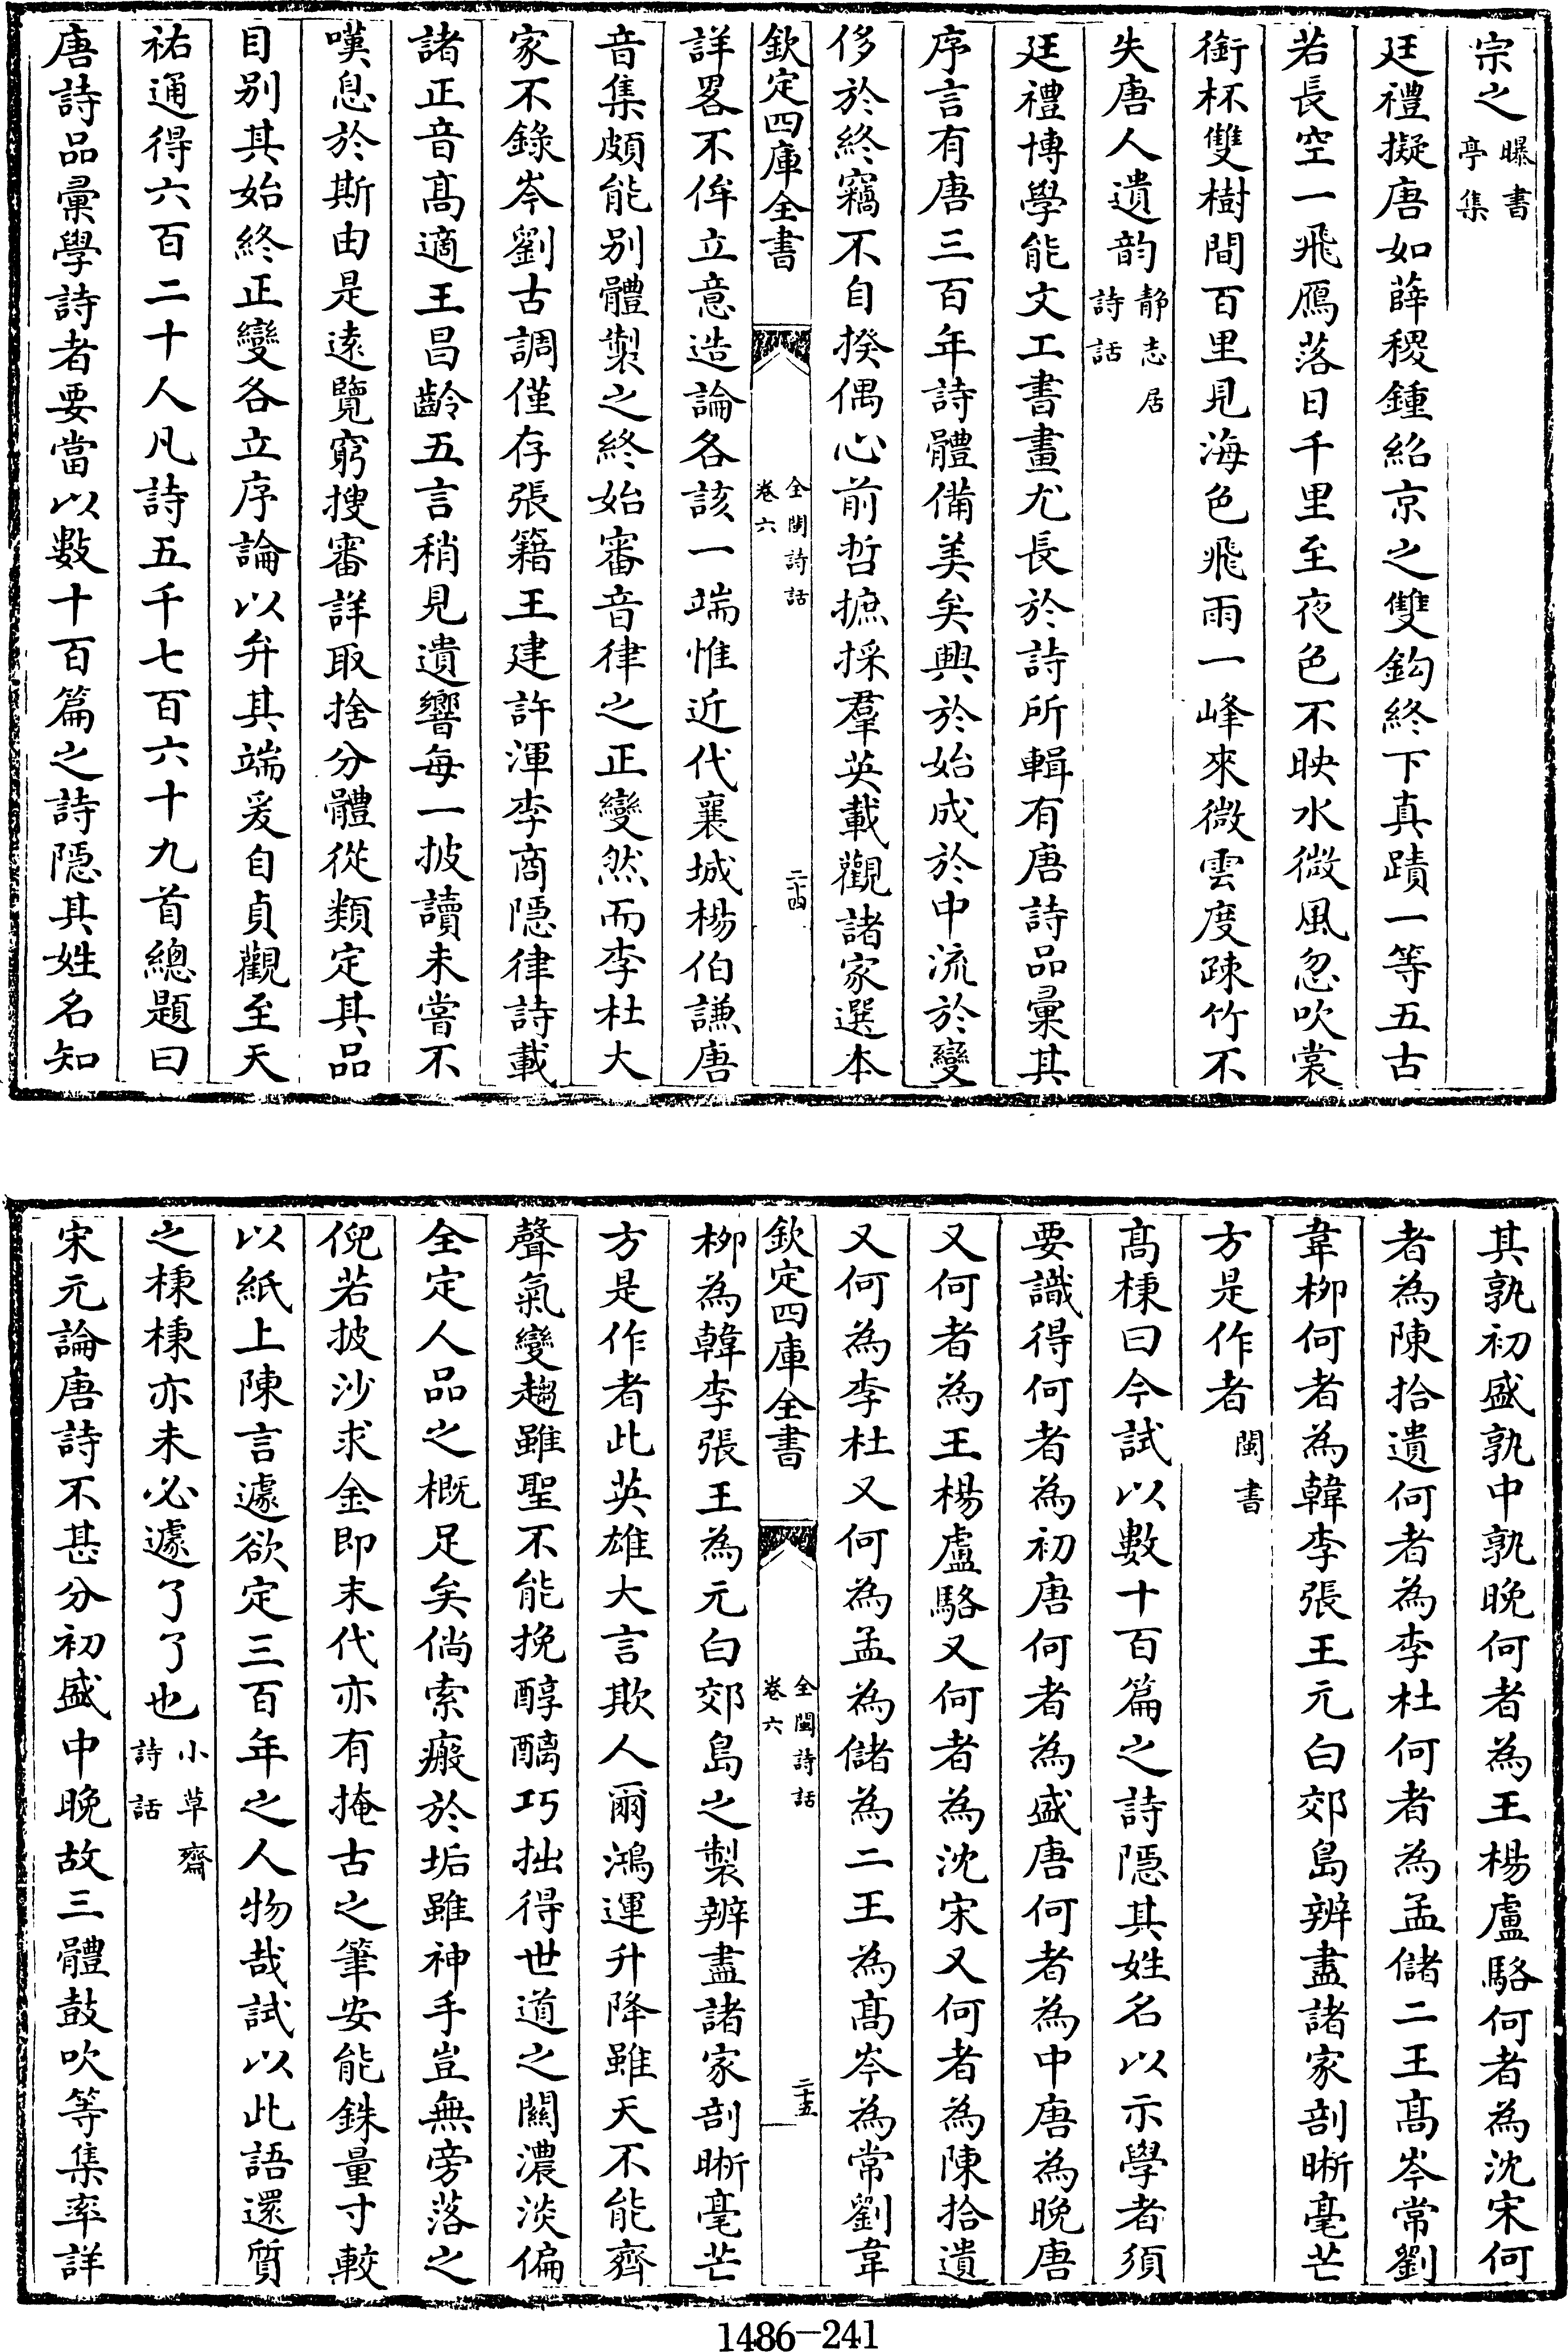 宗之曝書亭集
廷禮擬唐如薛稷鍾紹京之雙鈎終下真蹟一等五古
若長空一飛鴈落日千里至夜色不映水微風忽吹裳
銜杯雙樹間百里見海色飛雨一峰來微雲度疎竹不
失唐人遺韵静志居詩話
廷禮博學能文工書畫尤長於詩所輯有唐詩品彙其
序言有唐三百年詩體備美矣興於始成於中流於變
侈於終竊不自揆偶心前哲摭採羣英載觀諸家選本
欽定四庫全書
全閩詩話
卷六
二十四
詳畧不侔立意造論各該一端惟近代襄城楊伯謙唐
音集頗能别體製之終始審音律之正變然而李杜大
家不錄岑劉古調僅存張籍王建許渾李商隱律詩載
諸正音髙適王昌齡五言稍見遺響每一披讀未嘗不
嘆息於斯由是逺覽窮搜審詳取捨分體從類定其品
目别其始終正變各立序論以弁其端爰自貞觀至天
祐通得六百二十人凡詩五千七百六十九首總題曰
唐詩品彙學詩者要當以數十百篇之詩隠其姓名知
其孰初盛孰中孰晚何者為王楊盧駱何者為沈宋何
者為陳拾遺何者為李杜何者為孟儲二王髙岑常劉
韋柳何者為韓李張王元白郊島辨盡諸家剖晰毫芒
方是作者閩書
髙棅曰今試以數十百篇之詩隠其姓名以示學者須
要識得何者為初唐何者為盛唐何者為中唐為晚唐
又何者為王楊盧駱又何者為沈宋又何者為陳拾遺
又何為李杜又何為孟為儲為二王為髙岑為常劉韋
欽定四庫全書
全閩詩話
卷六
二十五
柳為韓李張王為元白郊島之製辨盡諸家剖晰毫芒
方是作者此英雄大言欺人爾鴻運升降雖天不能齊
聲氣變趨雖聖不能挽醇醨巧拙得世道之關濃淡偏
全定人品之概足矣倘索瘢於垢雖神手豈無旁落之
倪若披沙求金即末代亦有掩古之筆安能銖量寸較
以紙上陳言遽欲定三百年之人物哉試以此語還質
之棅棅亦未必遽了了也小草齋詩話
宋元論唐詩不甚分初盛中晚故三體鼓吹等集率詳
1486-241